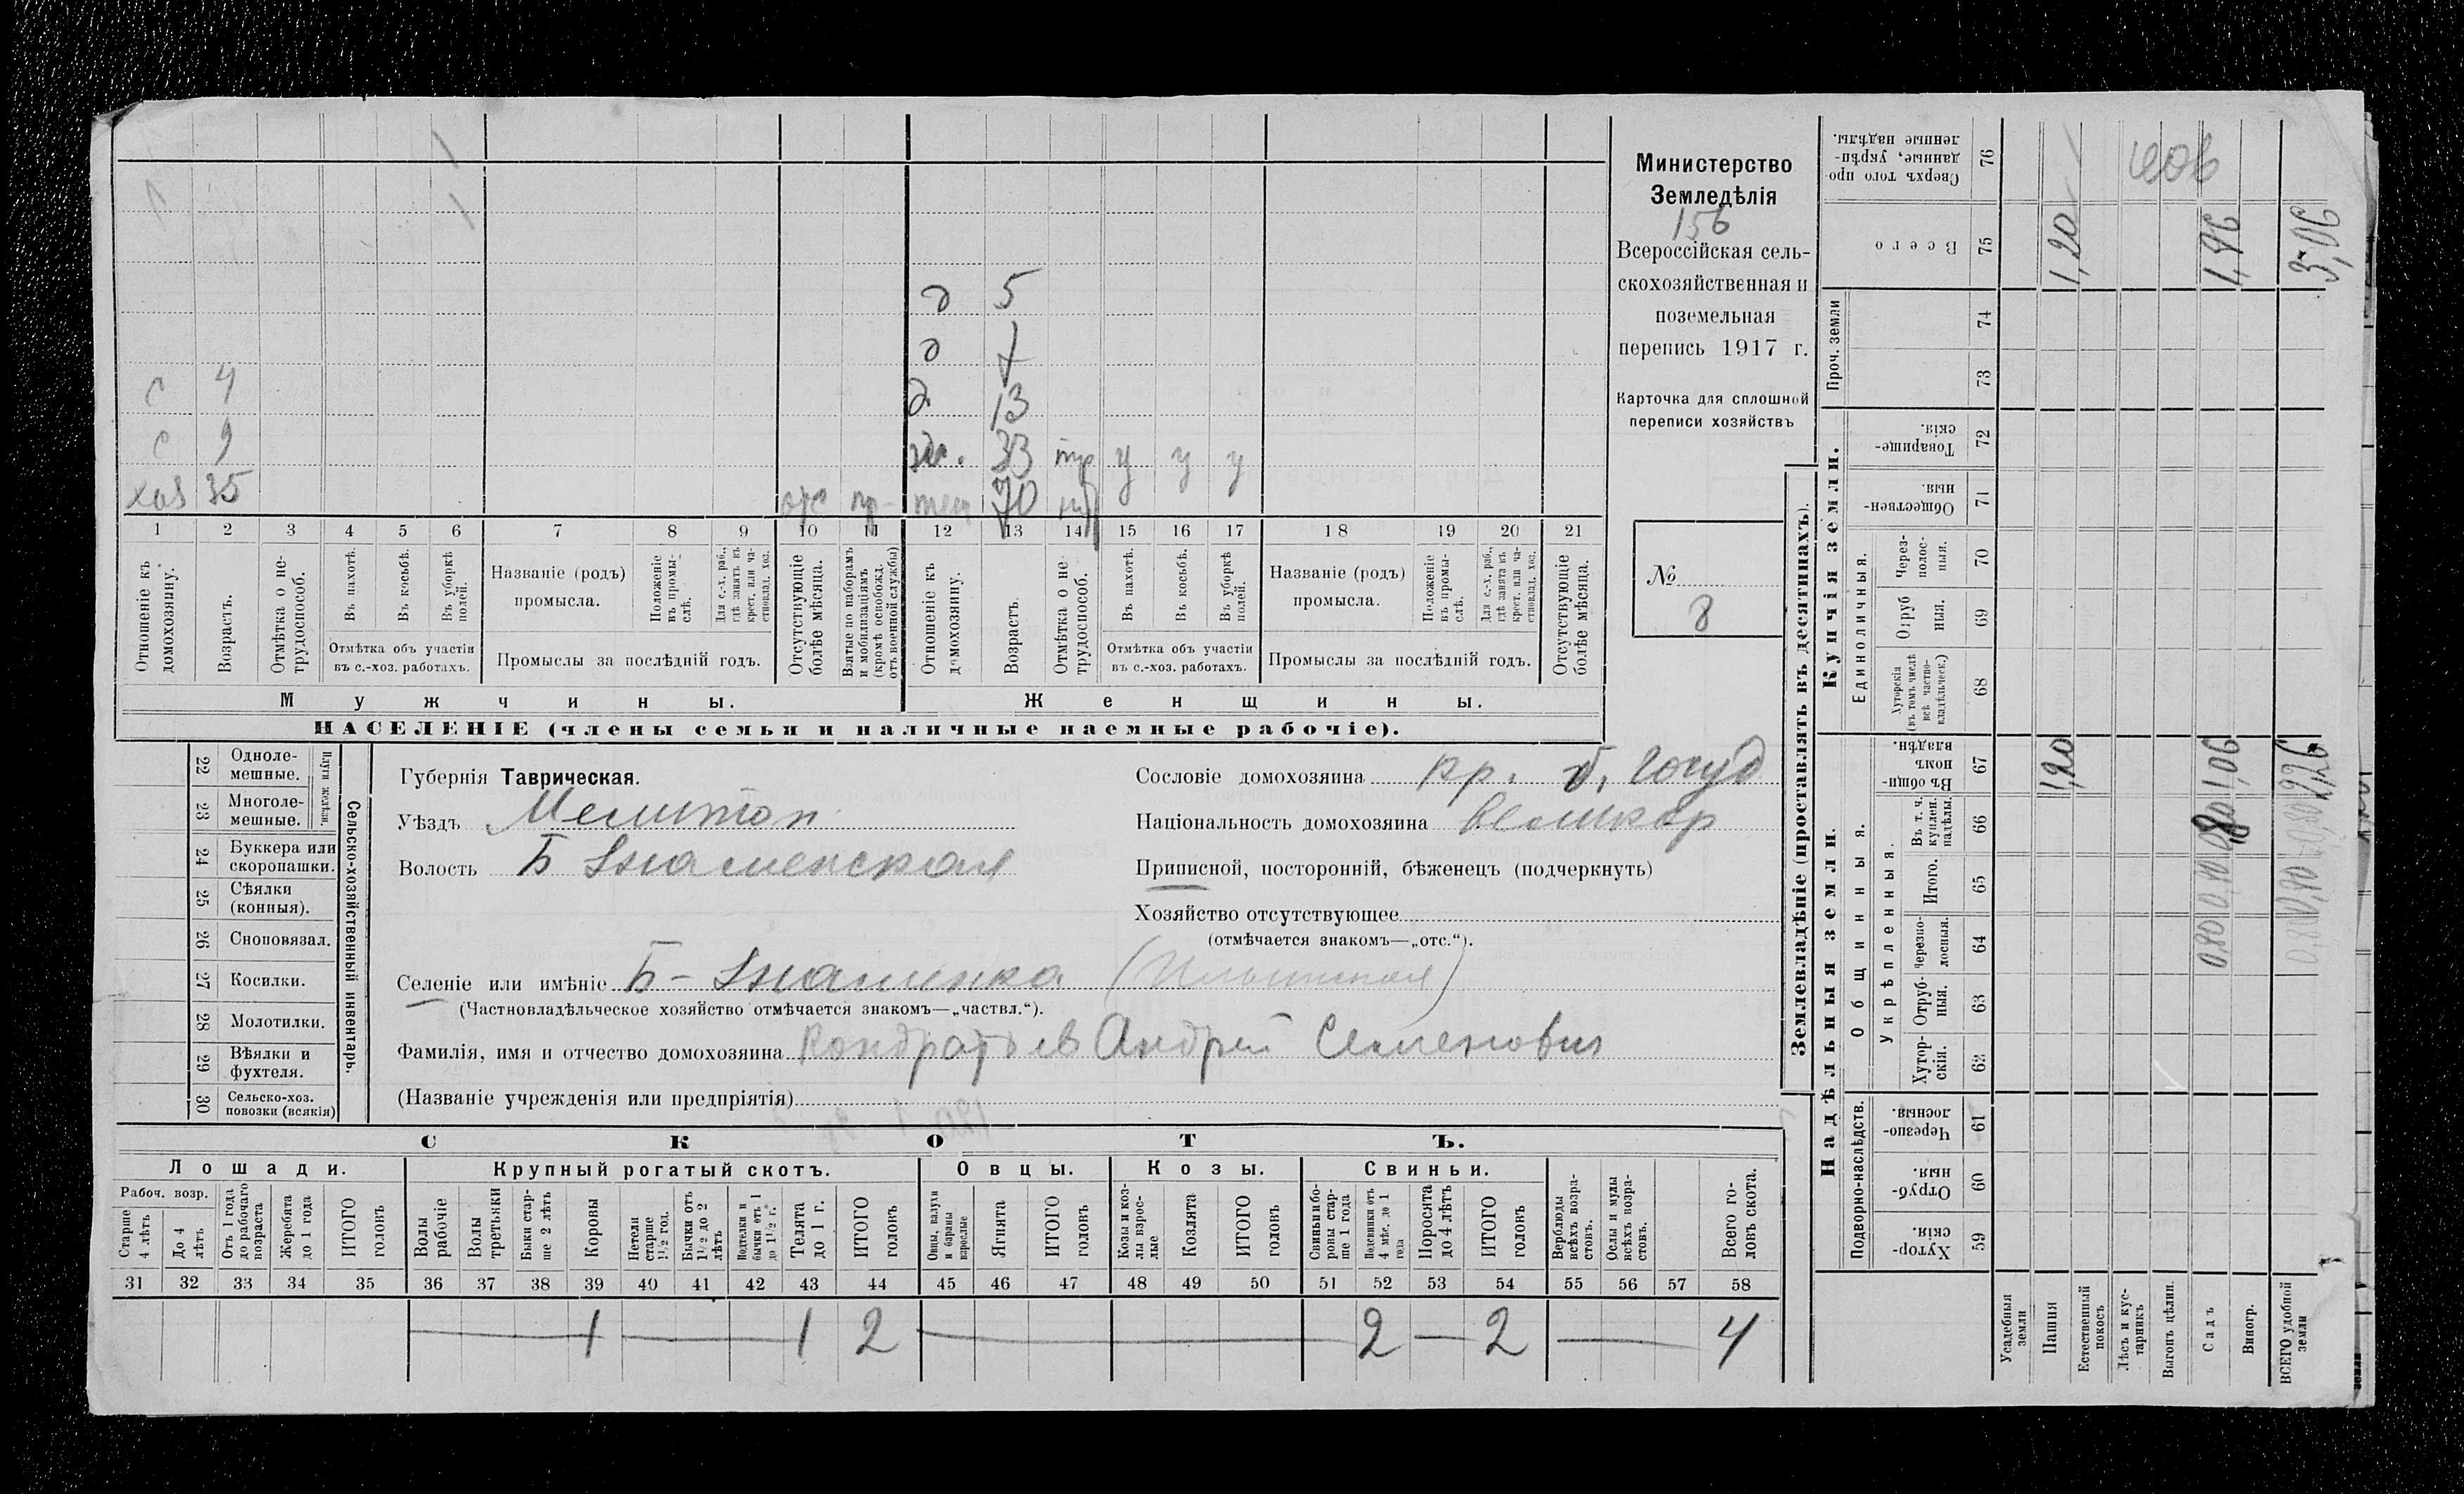 Министерство
Земледѣлія
156
Всероссійская сель-
скохозяйственная и
поземельная
перепись 1917 г.
Карточка для сплошной
переписи хозяйствъ
№
8
д 5
д 7
с 4 д 13
с 9 33 у у у
хоз 35 отс 70
1 2 3 4 5 6 7 8 9 10 11 12 13 14 15 16 17 18 19 20 21
Отношеніе къ домохозяину.
Возрастъ.
Отмѣтка о не-трудоспособ.
Въ пахотѣ.
Въ косьбѣ.
Въ уборкѣ полей.
Отмѣтка объ участіи въ с.-хоз. работахъ.
Названіе (родъ) промысла.
Положеніе въ промы-слѣ.
Для с.-х. раб., гдѣ занятъ въ крест. или ча-стновлад. хоз.
Промыслы за послѣдній годъ.
Отсутствующіе болѣе мѣсяца.
Взятые по наборамъ и мобилизаціямъ (кромѣ освобожд. отъ военной службы)
Отношеніе къ домохозяину.
Возрастъ.
Отмѣтка о не-трудоспособ.
Въ пахотѣ.
Въ косьбѣ.
Въ уборкѣ полей.
Отмѣтка объ участіи въ с.-хоз. работахъ.
Названіе (родъ) промысла.
Положеніе въ промы-слѣ.
Для с.-х. раб., гдѣ занята въ крест. или ча-стновлад. хоз.
Промыслы за послѣдній годъ.
Отсутствующіе болѣе мѣсяца.
Мужчины. Женщины.
НАСЕЛЕНІЕ (члены семьи и наличные наемные рабочіе).
Сельско-хозяйственный инвентарь.
22 Одноле-мешные.
23 Многоле-мешные.
24 Буккера или скоропашки.
25 Сѣялки (конныя).
26 Сноповязал.
27 Косилки.
28 Молотилки.
29 Вѣялки и фухтеля.
30 Сельско-хоз. повозки (всякія)
Губернія Таврическая.
Уѣздъ Мелитоп
Волость Б Знаменская
Сословіе домохозяина кр. б. госуд
Національность домохозяина великор
Приписной, посторонній, бѣженецъ (подчеркнуть)
Хозяйство отсутствующее
(отмѣчается знакомъ—„отс.“).
Селеніе или имѣніе Б-Знаменка (Ильинская)
(Частновладѣльческое хозяйство отмѣчается знакомъ—„частвл.“).
Фамилія, имя и отчество домохозяина Кондратьев Андрей Семенович
(Названіе учрежденія или предпріятія)
СКОТЪ.
Лошади. Крупный рогатый скотъ. Овцы. Козы. Свиньи.
Рабоч. возр.
Старше 4 лѣтъ
До 4 лѣтъ
Отъ 1 года до рабочаго возраста
Жеребята до 1 года
ИТОГО головъ
Волы рабочіе
Волы третьяки
Быки стар-ше 2 лѣтъ
Коровы
Нетели старше 1½ год.
Бычки отъ 1½ до 2 лѣтъ
Подтелки и бычки отъ 1 до 1½ г.
Телята до 1 г.
ИТОГО головъ
Овцы, валухи и бараны взрослые
Ягнята
ИТОГО головъ
Козы и коз-лы взрос-лые
Козлята
ИТОГО головъ
Свиньи и бо-ровы стар-ше 1 года
Подсвинки отъ 4 мѣс. до 1 года
Поросята до 4 лѣтъ
ИТОГО головъ
Верблюды всѣхъ возра-стовъ.
Ослы и мулы всѣхъ возра-стовъ.
Всего го-ловъ скота.
31 32 33 34 35 36 37 38 39 40 41 42 43 44 45 46 47 48 49 50 51 52 53 54 55 56 57 58
1 1 2 2 2 4
Землевладѣніе (проставлять въ десятинахъ).
Надѣльныя земли. Купчія земли. Проч. земли
Подворно-наслѣдств. Общинныя. Укрѣпленныя. Единоличныя.
59 Хутор-скія.
60 Отруб-ныя.
61 Черезпо-лосныя.
62 Хутор-скія.
63 Отруб-ныя.
64 Черезпо-лосныя.
65 Итого.
66 Въ т. ч. куплен. надѣлы.
67 Въ общин-номъ владѣн.
68 Хуторскія (въ томъ числѣ всѣ частно-владѣльческ.)
69 Отруб ныя.
70 Через-полос-ныя.
71 Обществен-ныя.
72 Товарище-скія.
73
74
75 Всего
76 Сверхъ того про-данные, укрѣп-ленные надѣлы.
Усадебныя земли
Пашня 1,20 1,20
Естественный покосъ
Лѣсъ и кус-тарникъ
Выгонъ цѣлин.
Садъ 0,80 1,06
Виногр.
ВСЕГО удобной земли 2,26 3,06